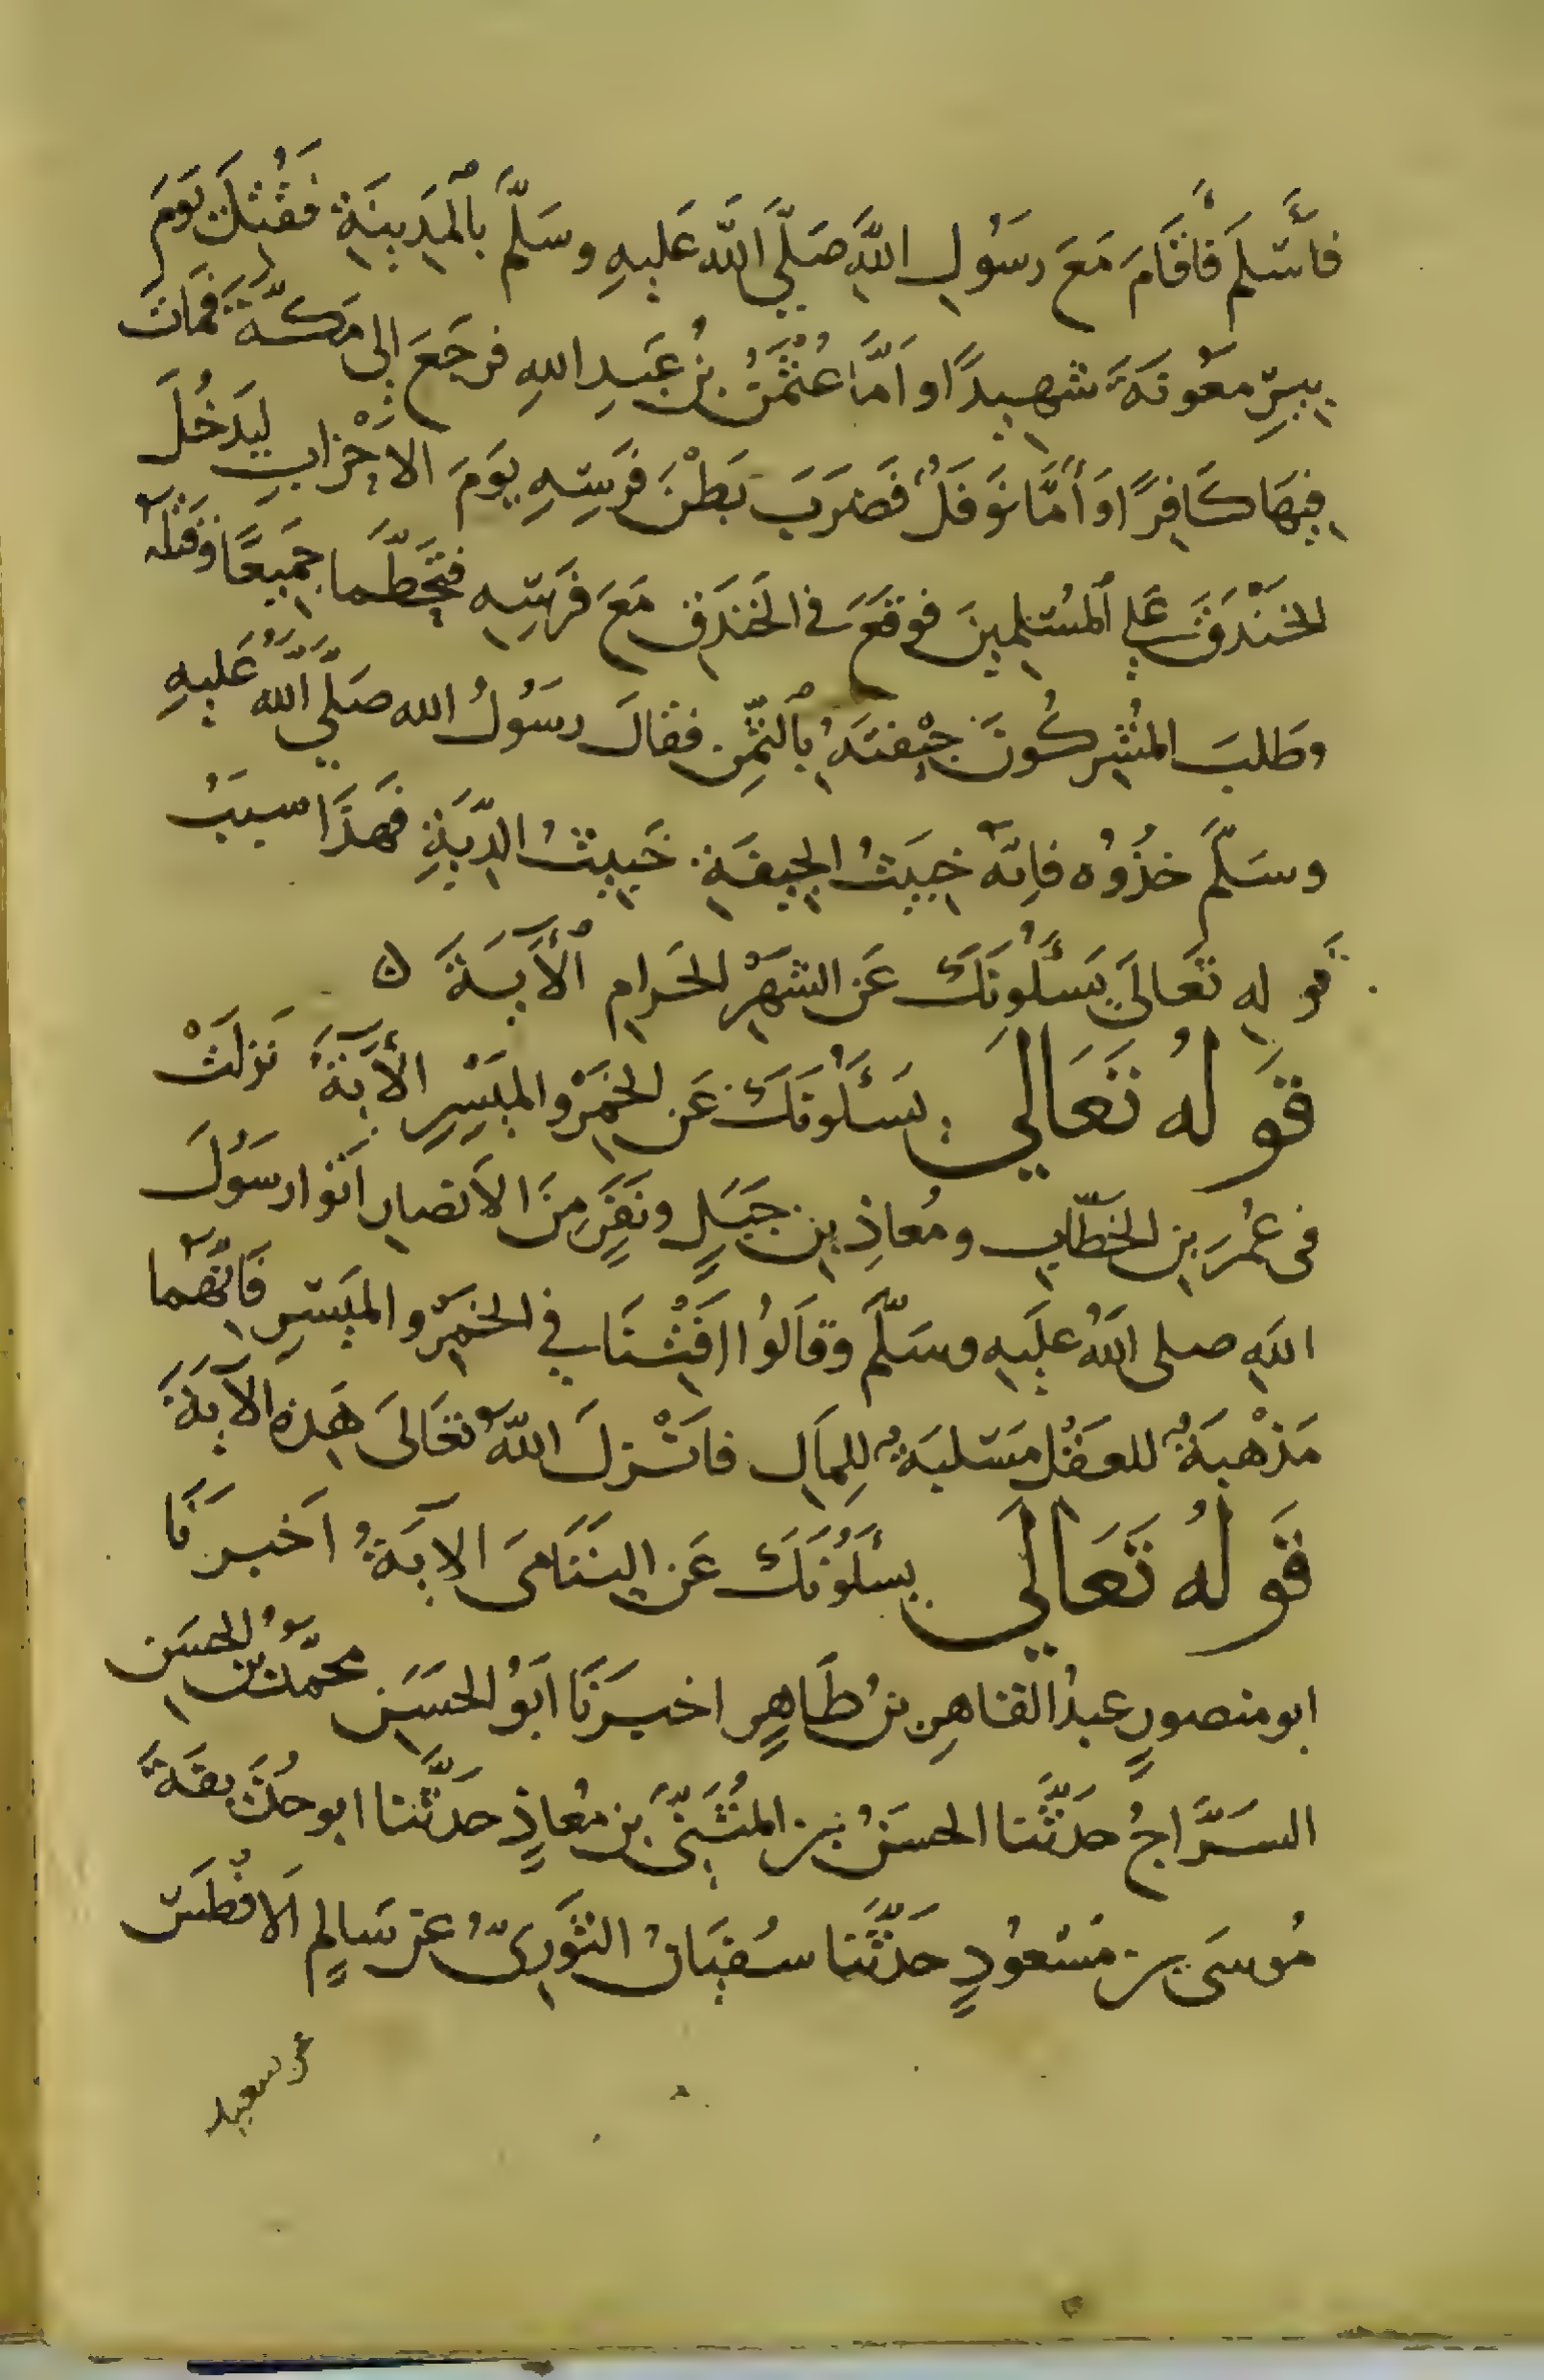 فأسلم فأقام مع رسول الله صلي الله عليه وسلم بالمدينة فقتل يوم
ببير معونة شهيدا واما عثمن بن عبد الله فرجع الى مكة فمات
فيها كافرا وأما نوفل فضرب بطن فرسه يوم الاحزاب ليدخل
الخندق علي المسلمين فوقع في الخندق مع فرسه فتحطما جميعا وقتله
وطلب المشركون جيفته بالثمن فقال رسول الله صلي الله عليه
وسلم خذوه فانه خبيث الجيفة خبيث الدية فهذا سبب
قوله تعالى يسئلونك عن الشهر الحرام الآية ن
قوله تعالي يسئلونك عن الخمر والميسر الآية نزلت
فى عمر بن الخطاب ومعاذ بن جبل ونفر من الانصار اتوا رسول
الله صلى الله عليه وسلم وقالوا افتنا في الخمر والميسر فانهما
مذهبة للعقل مسلبة للمال فانزل الله تعالى هذه الآية
قوله تعالي يسئلونك عن اليتامى الآية اخبرنا
ابو منصور عبد القاهر بن طاهر اخبرنا ابو الحسن محمد بن الحسن
السراج حدثنا الحسن بن المثنى بن معاذ حدثنا ابو حذيفة
موسى بن مسعود حدثنا سفيان الثورى عن سالم الافطس
عن سعيد